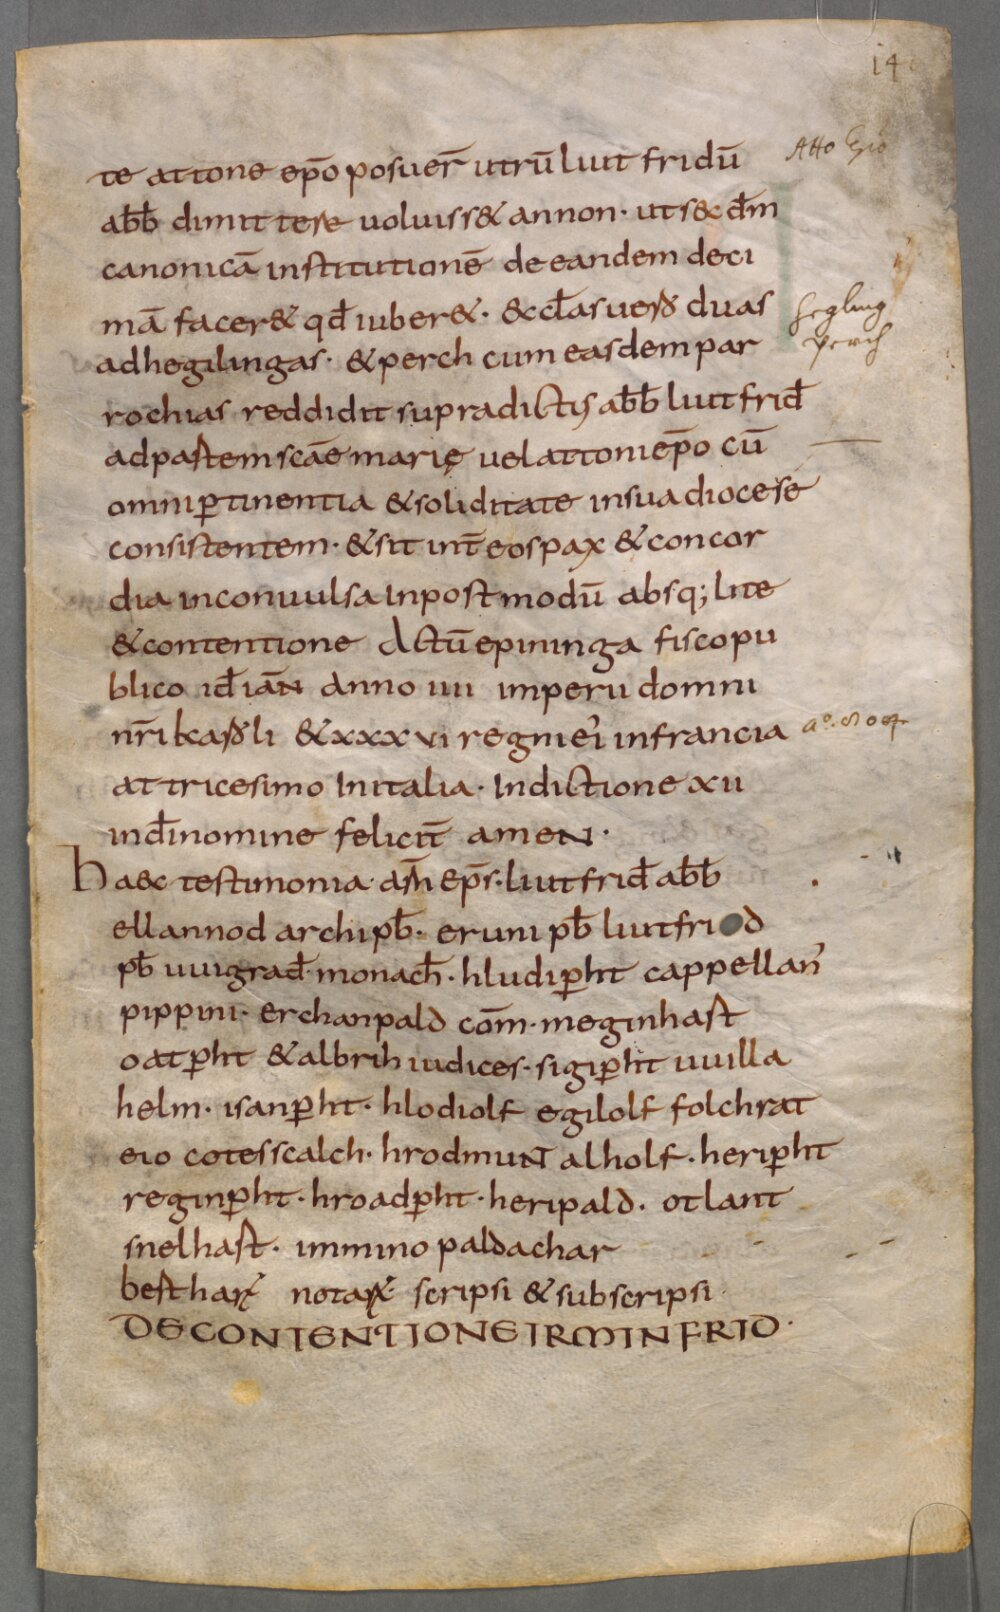 14
te attone ep̄o posuer̄ utrū liut fridū
Atto
ab̄b dimit tere uoluiss& an non· ut s&c d̄m
canonicā institutionē de eandem deci
mā facer& qd̄ iuber&· & ec̄l̄as uero duas
hegling
ad hegilingas· & perch cum easdem par
perch
rochias reddidit supradictis ab̄b liutfrid̄
ad partem sc̄ae marię uel attoni ep̄o cū
omni ꝑtinentia & soliditate in sua diocese
consistentem· & sit int̄ eos pax & concor
dia inconuulsa inpostmodū absq; lite
& contentione Actū epininga fisco pu
blico id̄ iāN anno iiii imperii domni
nr̄i karoli & xxxvi regni ei' in francia
aº. 804
at tricesimo in italia· Indictione xii
in d̄i nomine felicit̄ ameN·
haec testimonia· ep̄s· liutfrid̄ ab̄b
ellannod archi pb̄· eruni pb̄ liutfrid
pb̄ uuigrad̄· monach̄· hludiꝑht cappellan'
pippini· erchanpald cōm· meginhart
oatꝑht & albrih iudices· sigiꝑht uuilla
helm· isanꝑht· hlodiolf egilolf folchrat
eio cotesscalch· hrodmuNt alholf· heriꝑht
reginꝑht· hroadꝑht· heripald· otlant
snelhart· immino paldachar
scripsi & subscripsi·
DE CONTENTIONE IRMINFRID·